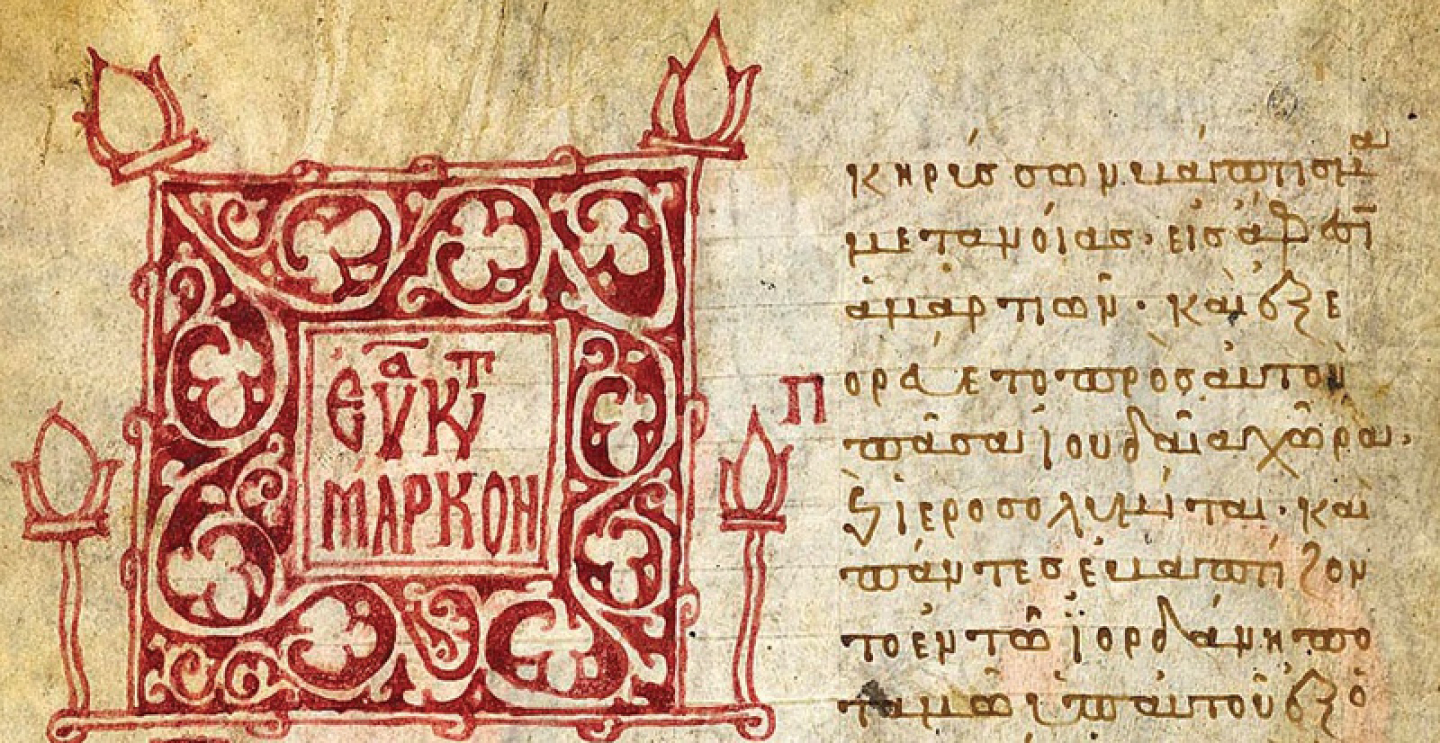 ΕΥᾱ ΚΤ
ΜΆΡΚΟΝ
κηρύσσων βάπτισμα
μετανοίας· εἰς ἄφεσῑ
ἁμαρτιῶν· καὶ ἐξε
Πορεύετο πρὸς αὐτὸν
πᾶσα ἰουδαῖα χῶρα·
ϗ ἱεροσολυμίται· καὶ
πάντες ἐβαπτίζον
το ἐν τῶ ϊορδάνη πο
ταμῶ ὑπ αὐτοῦ ἐξο